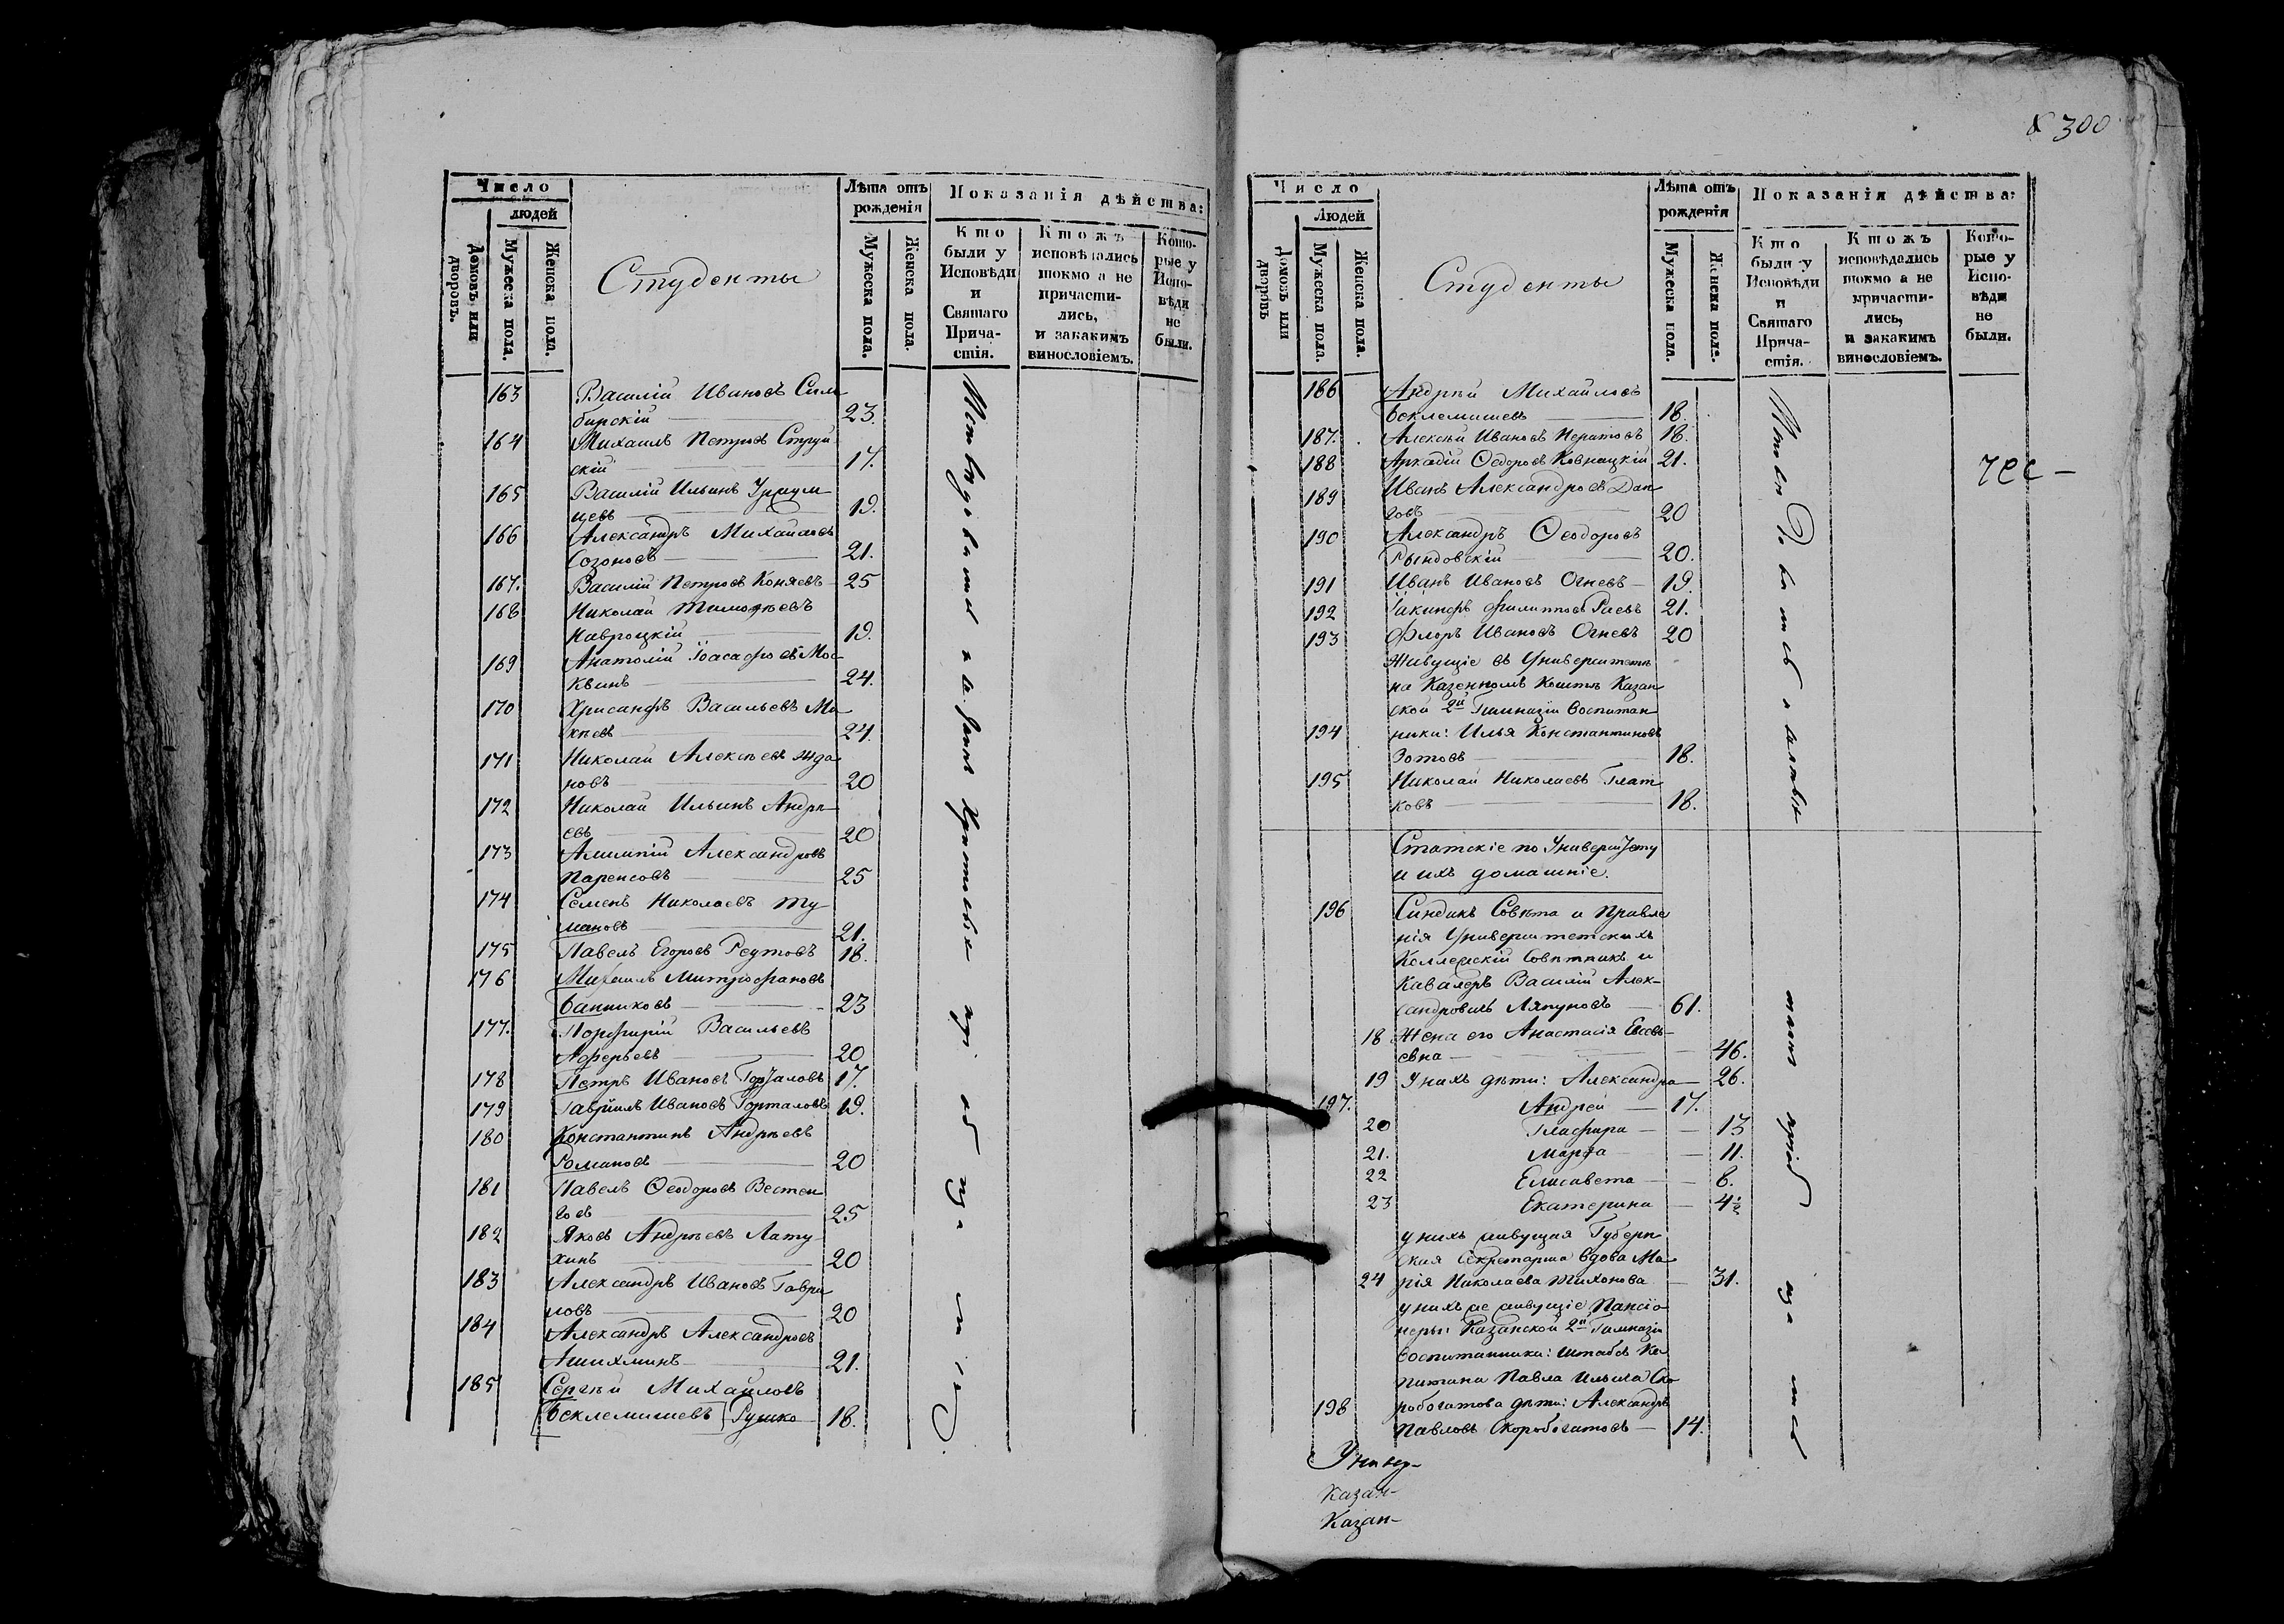 Число
людей
Домовъ или дворовъ.
Мужеска пола.
Женска пола.
Студенты
Лѣта отъ рожденія
Мужеска пола.
Женска пола.
Показанія дѣйства:
Кто были у Исповѣди и Святаго Причастія.
Ктожъ исповѣдались токмо а не причастились, и закакимъ винословіемъ.
Которые у Исповѣди не были.
163 Василій Ивановъ Сим
бирскій 23.
164 Михаилъ Петровъ Струй
скій 17.
165 Василій Ильинъ Уржум
цевъ 19.
166 Александръ Михайловъ
Созоновъ 21.
167. Василій Петровъ Коняевъ 25
168 Николай Тимоѳеевъ
Навроцкій 19.
169 Анатолій Іоасафовъ Мос
квинъ 24.
170 Хрисанфъ Васильевъ Мо
кѣевъ 24.
171 Николай Алексѣевъ Жда
новъ 20
172 Николай Ильинъ Андрѣ
евъ 20
173 Алимпій Александровъ
Паренсовъ 25
174 Семенъ Николаевъ Ту
мановъ 21.
175 Павелъ Егоровъ Реутовъ 18.
176 Михаилъ Митрофановъ
Банниковъ 23
177. Порфирій Васильевъ
Аферьевъ 20
178 Петръ Ивановъ Горталовъ 17.
179 Гавріилъ Ивановъ Горталовъ 19.
180 Константинъ Андрѣевъ
Романовъ 20
181 Павелъ Ѳеодоровъ Вестен
говъ 25
182 Яковъ Андрѣевъ Лату
хинъ 20
183 Александръ Ивановъ Гаври
ловъ 20
184 Александръ Александровъ
Ашихминъ 21.
185 Сергѣй Михайловъ
Беклемишевъ Рушко 18.
300
Число
Людей
Домовъ или дворовъ
Мужеска пола.
Женска пола.
Студенты
Лѣта отъ рожденія
Мужеска пола.
Женска пола.
Показанія дѣйства:
Кто были у Исповѣди и Святаго Причастія.
Ктожъ исповѣдались токмо а не причастились, и закакимъ винословіемъ.
Которые у Исповѣди не были.
186 Андрей Михайловъ
Беклемишевъ 18.
187. Алексѣй Ивановъ Нератовъ 18.
188 Аркадій Ѳедоровъ Ковнацкій 21.
189 Иванъ Александровъ Дан
говъ 20
190 Александръ Ѳеодоровъ
Рындовскій 20.
191 Иванъ Ивановъ Огневъ 19.
192 Іакинфъ Филиповъ Раевъ 21.
193 Флоръ Ивановъ Огневъ 20
Живущіе въ Университетѣ
на Казенномъ Коштѣ Казан
ской 2й Гимназіи Воспитан
194 ники: Илья Константиновъ
Зотовъ 18.
195 Николай Николаевъ Глат
ковъ 18.
Статскіе по Университету
и ихъ домашніе.
196 Синдикъ Совѣта и Правле
нія Университетскихъ
Коллежскій Совѣтникъ и
Кавалеръ Василій Алек-
сандровичь Ляпуновъ 61.
18 Жена его Анастасія Евсевь-
евна 46.
19 У нихъ дѣти: Александра 26.
197. Андрей 17.
20 Глафира 13
21. Марфа 11.
22 Елисавета 8.
23 Екатерина 4½
у нихъ живущая Губерн
ская Секретарша вдова Ма
24 рія Николаева Тихонова 31.
у нихъ же живущіе Пансіо
неры: Казанской 2й Гимназіи
воспитанники: Штабсъ Ка
питана Павла Ильича Ско
198 робогатова дѣти: Александръ
Павловъ Скоробогатовъ 14.
Универ-
Казан-
Казан-